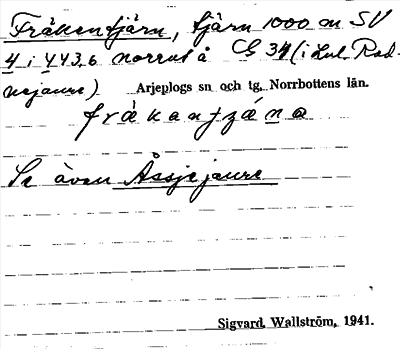 Fräkentjärn, tjärn 1000 m SV
4 i 443,6 norrut å CG 34 (i Lul. Rad-
nejaure) Arjeplogs sn och tg, Norrbottens län.
fräkantjäna
Se även Åssjejaure
Sigvard Wallström, 1941.